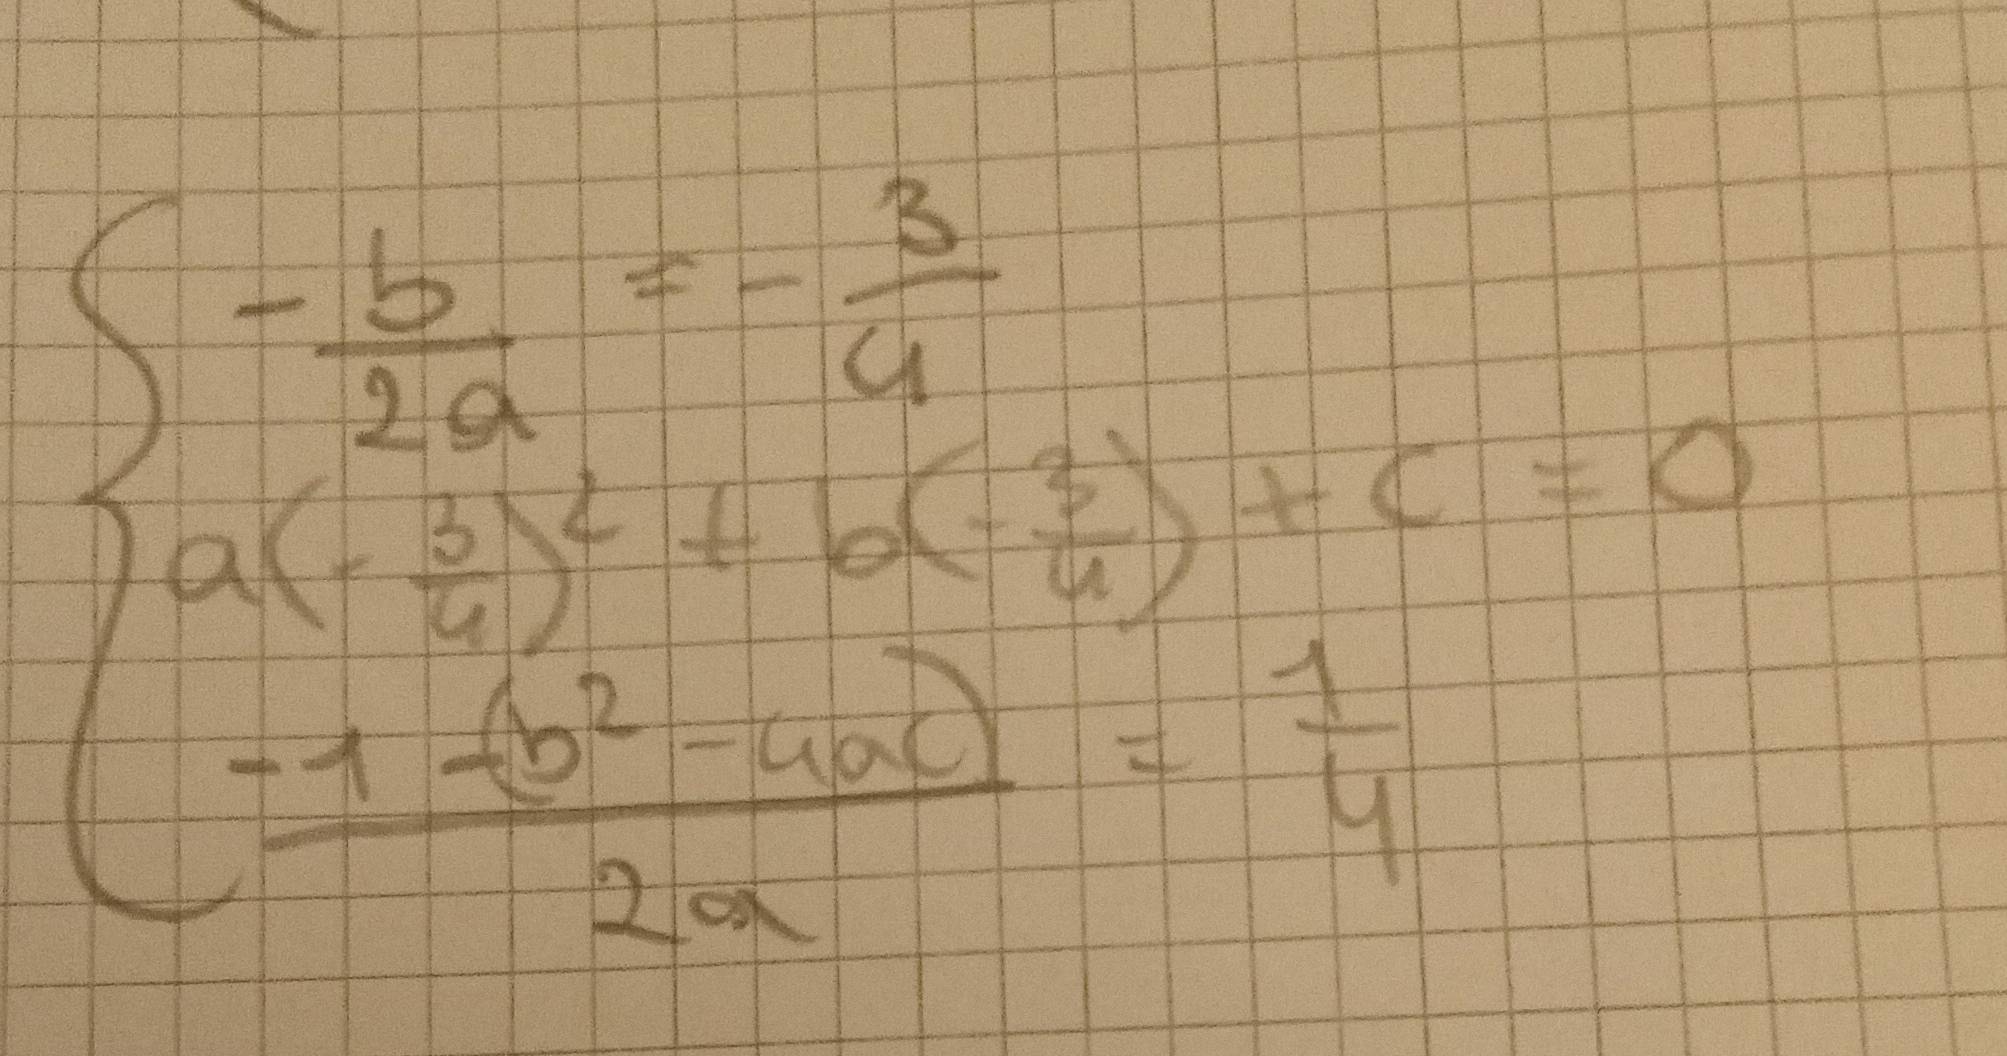 -b/2a = -3/4
a(-3/4)² + b(-3/4) + c = 0
-1-(b²-4ac)/2a = 1/4